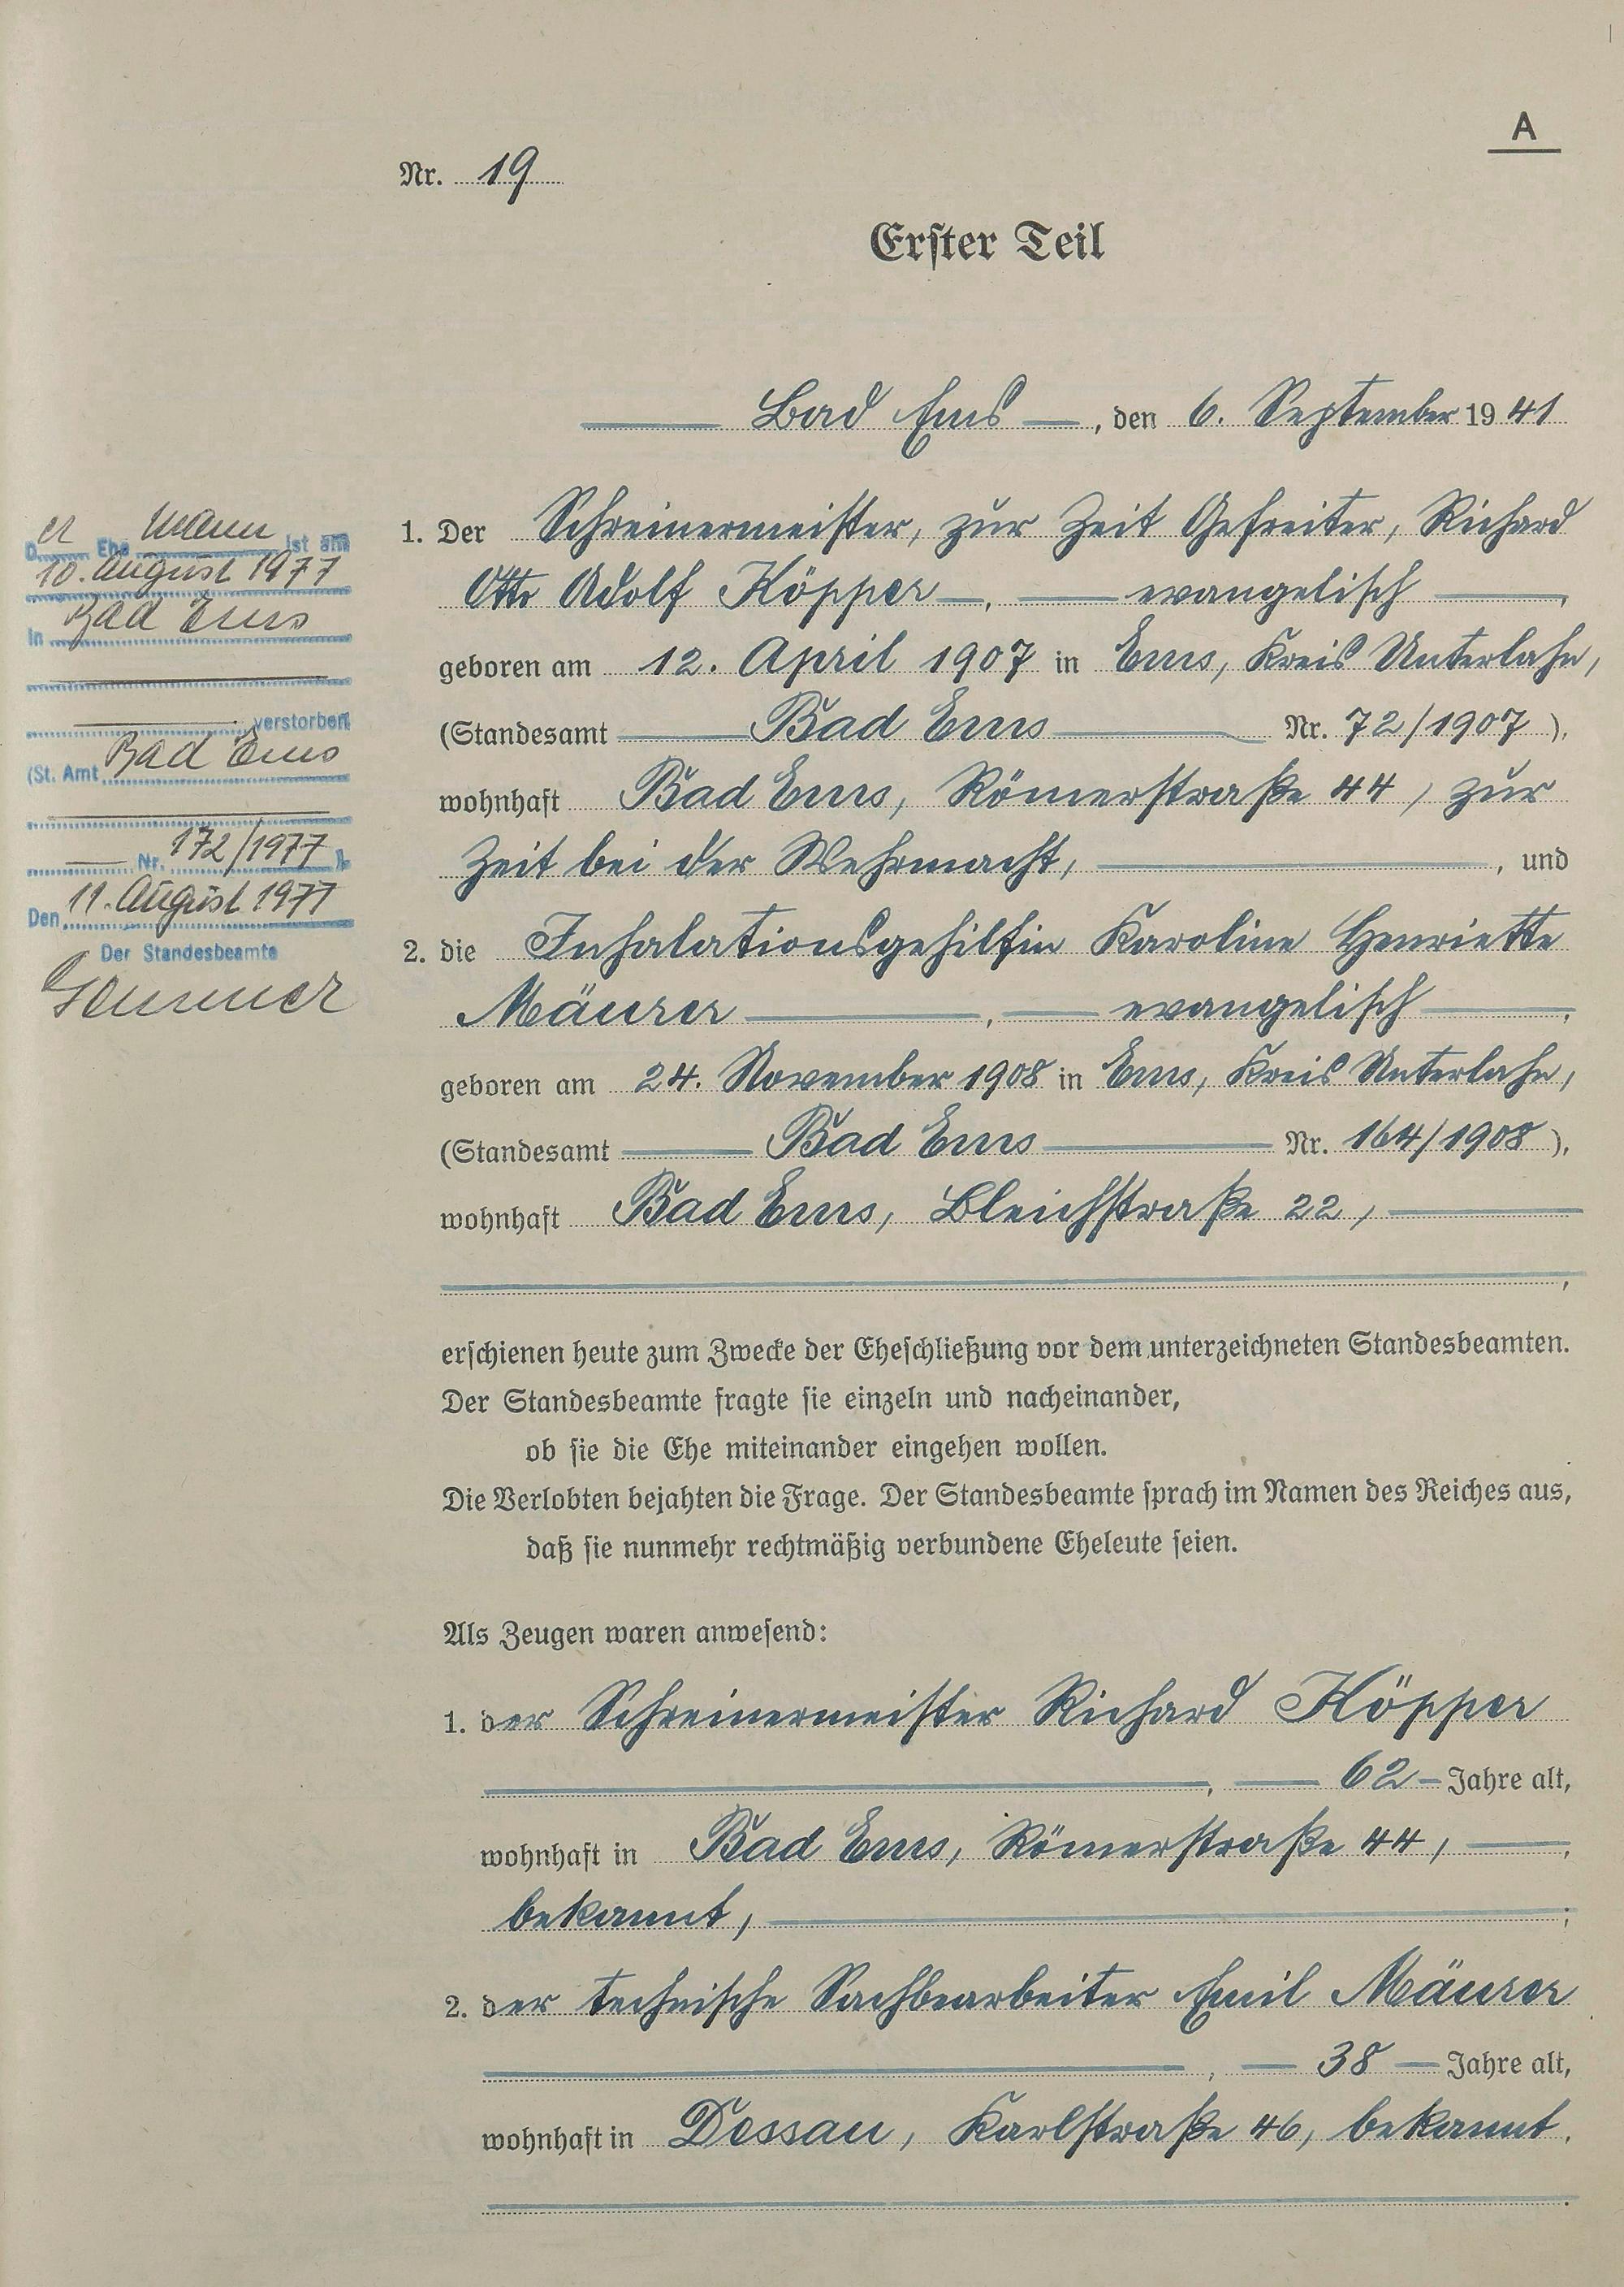 A
Nr. 19
Erster Teil
Bad Ems, den 6. September 1941
1. Der Schreinermeister, zur Zeit Gefreiter, Richard
Otto Adolf Köpper, evangelisch,
geboren am 12. April 1907 in Ems, Kreis Unterlahn,
(Standesamt Bad Ems Nr. 72/1907),
wohnhaft Bad Ems, Römerstraße 44, zur
Zeit bei der Wehrmacht, , und
2. die Inhalationsgehilfin Karoline Henriette
Mäurer, evangelisch,
geboren am 24. November 1908 in Ems, Kreis Unterlahn,
(Standesamt Bad Ems Nr. 164/1908),
wohnhaft Bad Ems, Bleichstraße 22,
erschienen heute zum Zwecke der Eheschließung vor dem unterzeichneten Standesbeamten.
Der Standesbeamte fragte sie einzeln und nacheinander,
ob sie die Ehe miteinander eingehen wollen.
Die Verlobten bejahten die Frage. Der Standesbeamte sprach im Namen des Reiches aus,
daß sie nunmehr rechtmäßig verbundene Eheleute seien.
Als Zeugen waren anwesend:
1. der Schreinermeister Richard Köpper
, 62 Jahre alt,
wohnhaft in Bad Ems, Römerstraße 44,
bekannt, ;
2. der technische Sachbearbeiter Emil Mäurer
, 38 Jahre alt,
wohnhaft in Dessau, Karlstraße 46, bekannt.
Der Ehe mann ist am
10. August 1977
in Bad Ems
verstorben
(St. Amt Bad Ems
Nr. 172/1977).
Den 11. August 1977
Der Standesbeamte